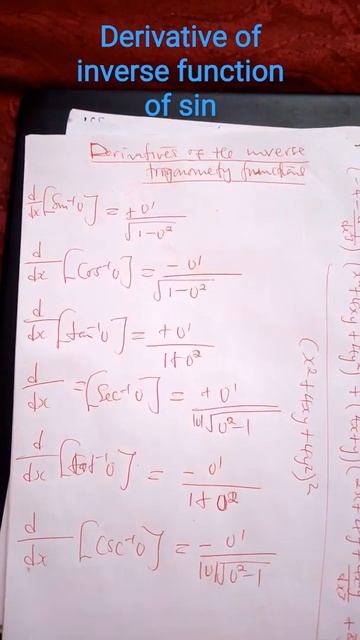 Derivative of
inverse function
of sin
Derivatives of the inverse
trigonometry functions
d/dx [Sin⁻¹U] = +U'/√(1-U²)
d/dx [Cos⁻¹U] = -U'/√(1-U²)
d/dx [tan⁻¹U] = +U'/(1+U²)
d/dx =[Sec⁻¹U] = +U'/(|U|√(U²-1))
d/dx [Cot⁻¹U] = -U'/(1+U²)
d/dx [Csc⁻¹U] = -U'/(|U|√(U²-1))
(x²+4xy+4y²)²